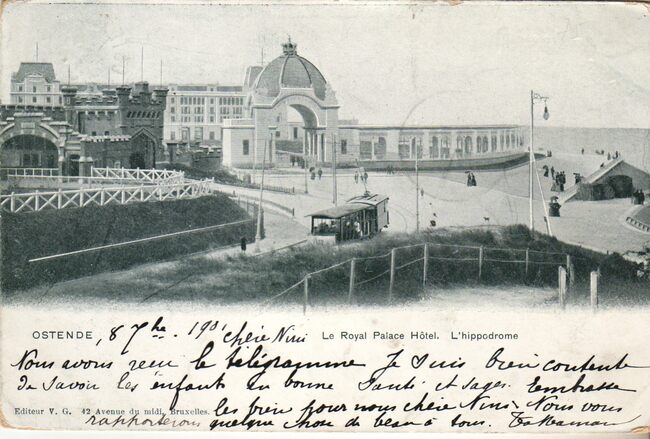 OSTENDE, 8 7bre 1901 chère Nini Le Royal Palace Hôtel. L'hippodrome
Nous avons reçu le télégramme Je suis bien contente
de savoir les enfants en bonne santé et sages. Embrasse
les bien pour nous chère Nini. Nous vous
Editeur V. G. 42 Avenue du midi, Bruxelles.
rapporterons quelque chose de beau à tous. Ta Maman